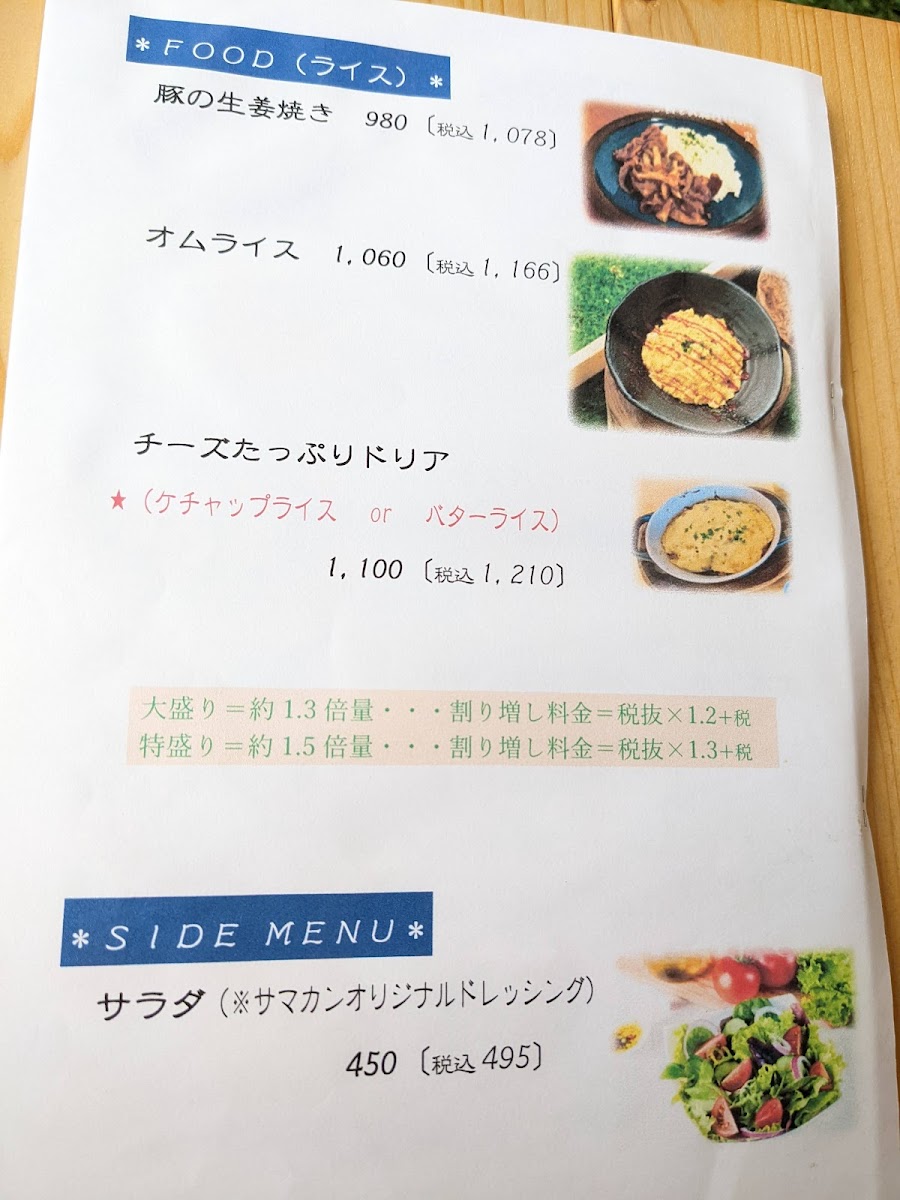 ＊ＦＯＯＤ（ライス）＊
豚の生姜焼き　980〔税込1,078〕
オムライス　1,060〔税込1,166〕
チーズたっぷりドリア
★（ケチャップライス　or　バターライス）
1,100〔税込1,210〕
大盛り＝約1.3倍量・・・割り増し料金＝税抜×1.2+税
特盛り＝約1.5倍量・・・割り増し料金＝税抜×1.3+税
＊ＳＩＤＥ ＭＥＮＵ＊
サラダ（※サマカンオリジナルドレッシング）
450〔税込495〕